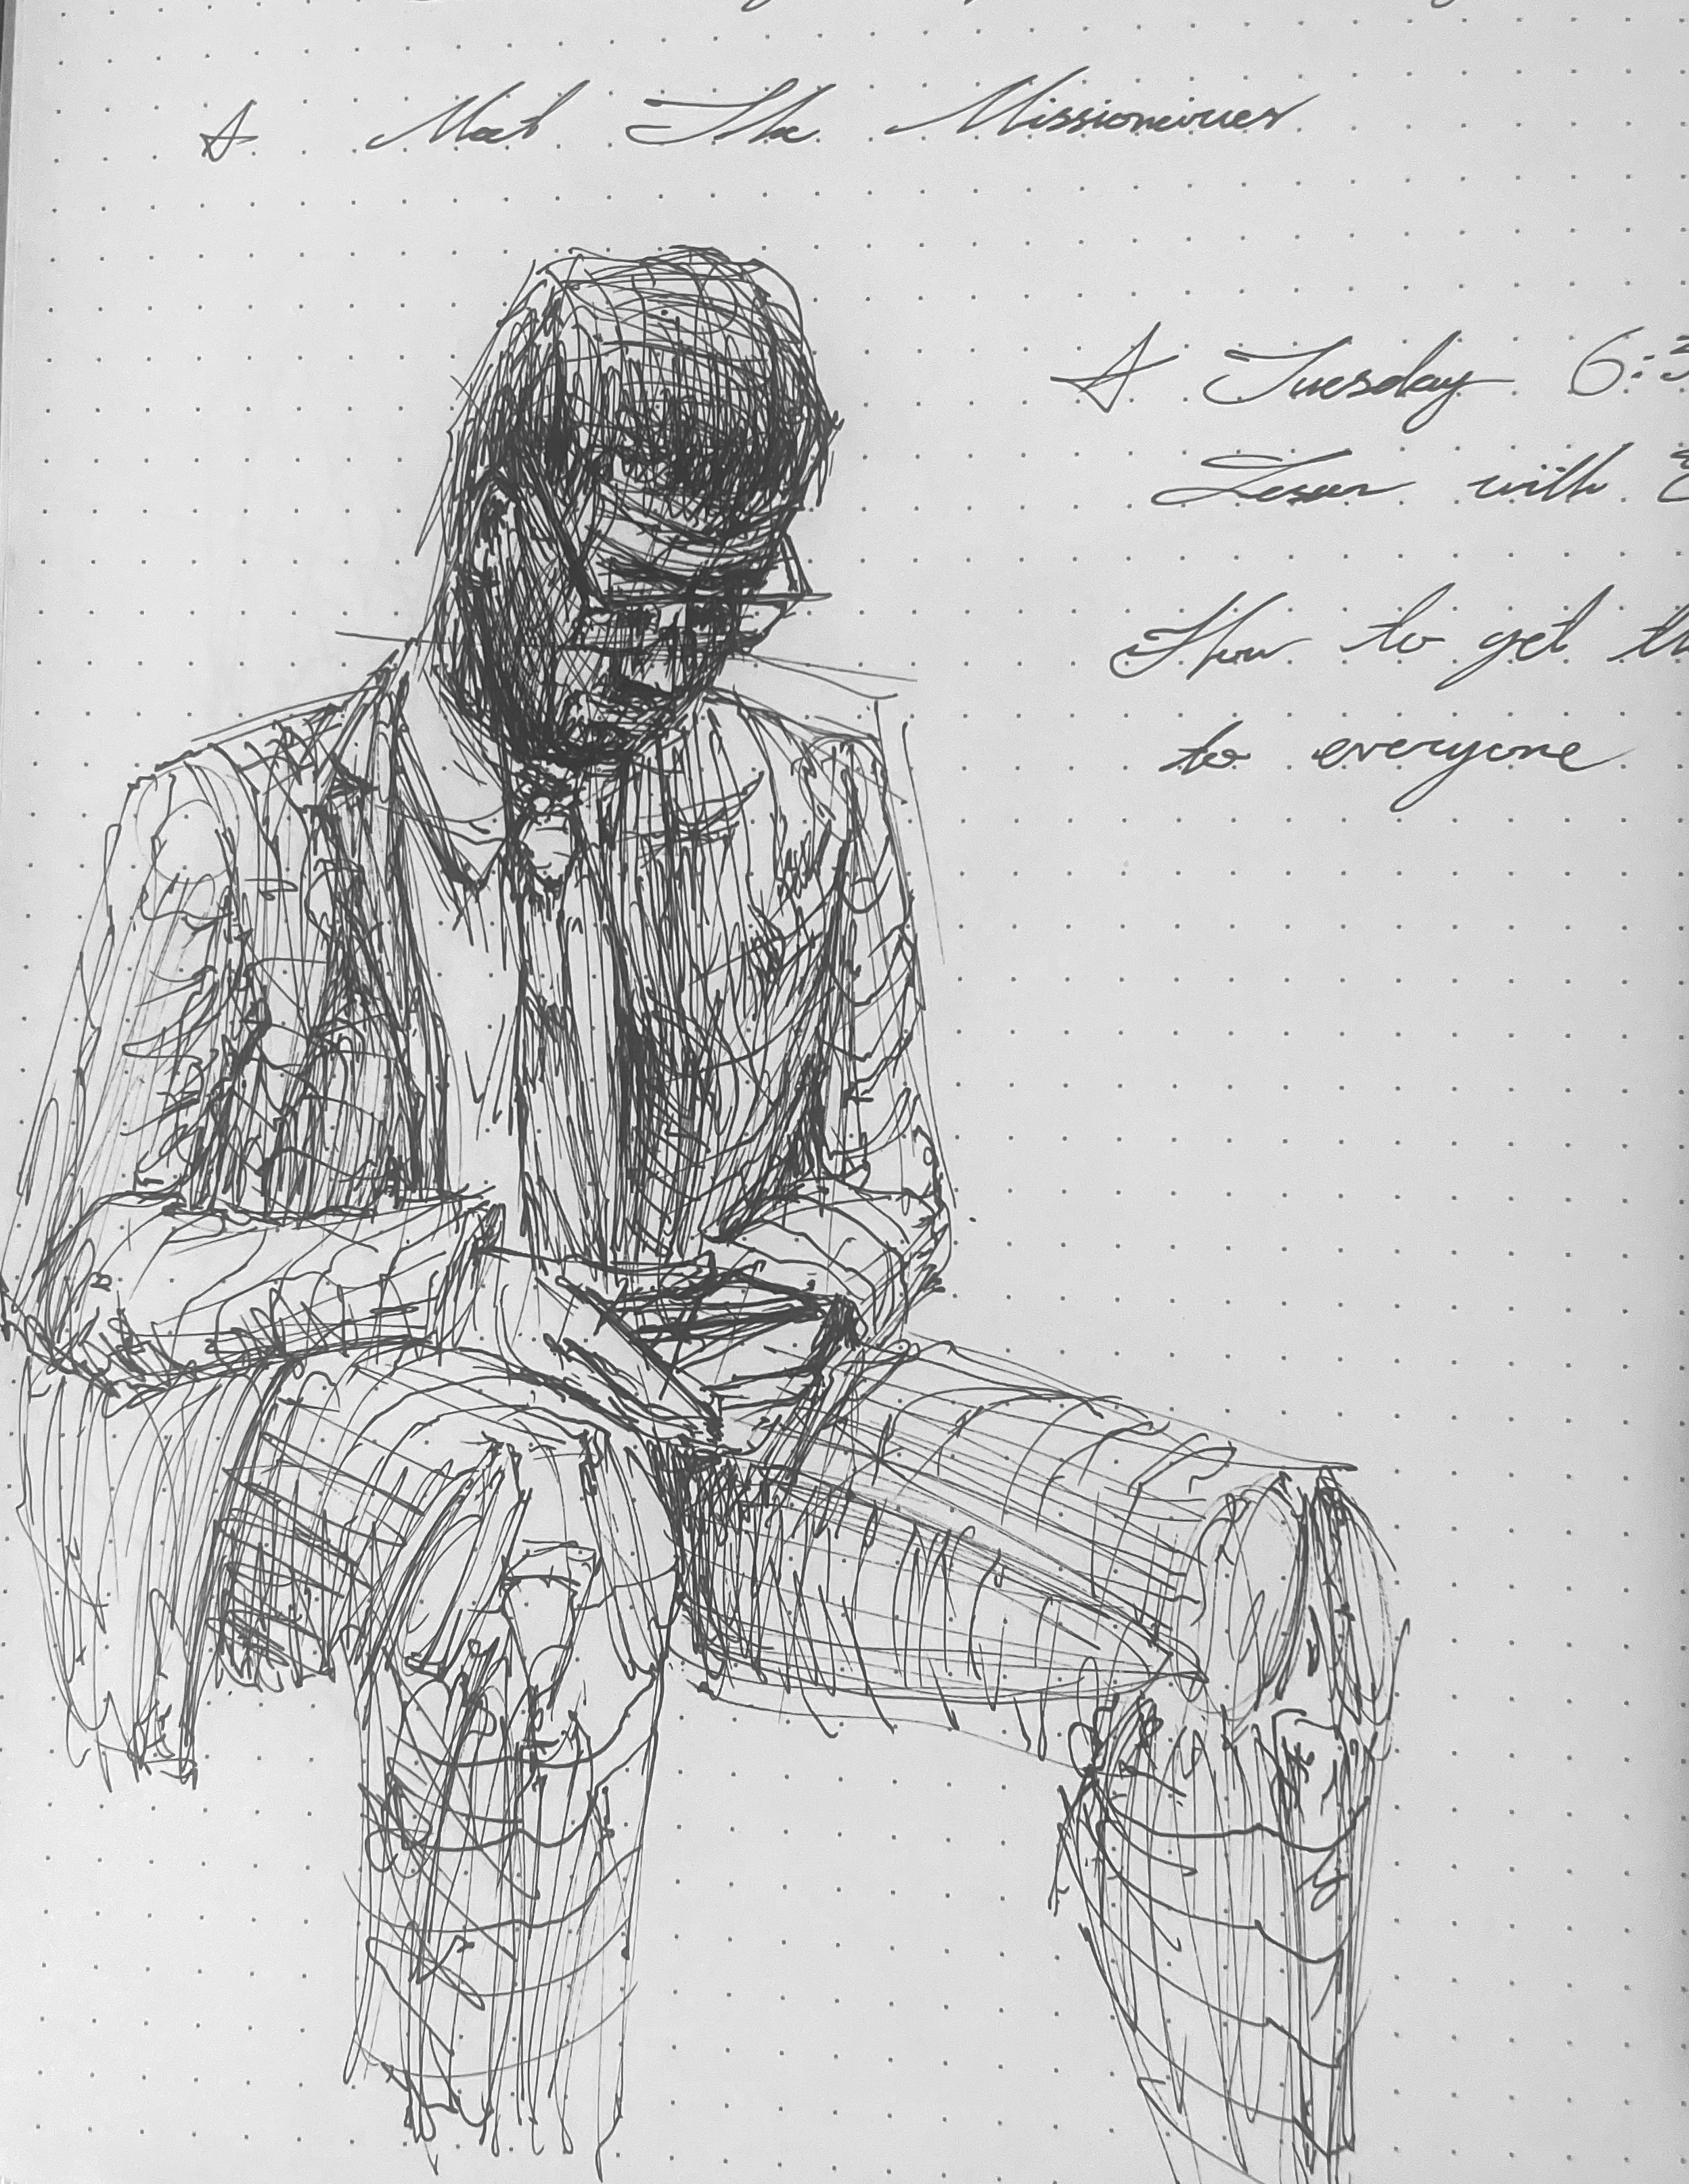 Meet The Missionaries
Tuesday 6:3
Lesson with
How to get th
to everyone